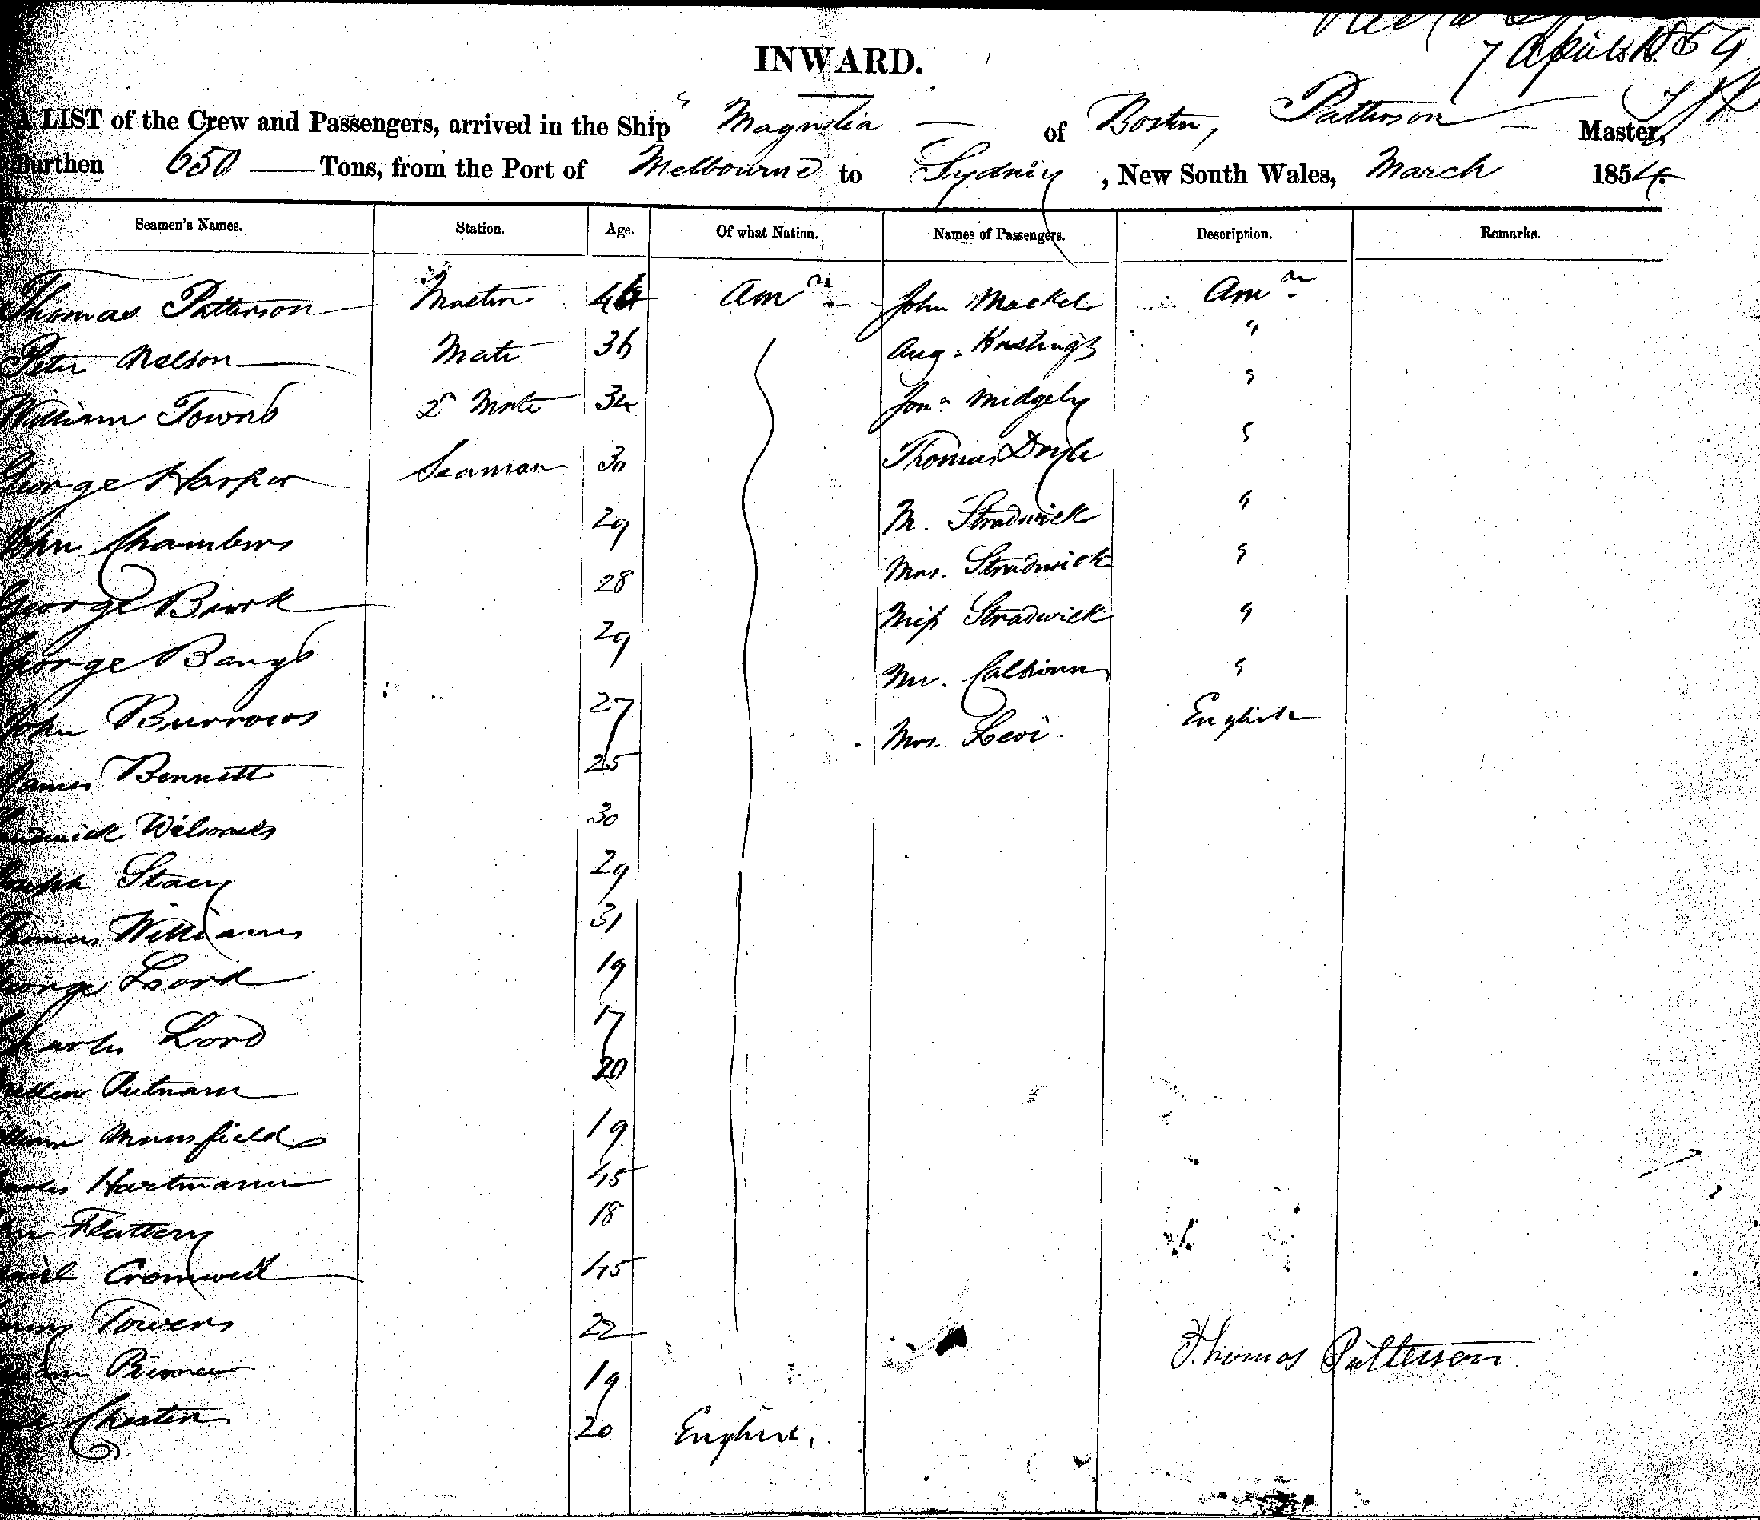 7 April 1854
INWARD.
A LIST of the Crew and Passengers, arrived in the Ship "Magnolia — of Boston, Patterson — Master,
Burthen 650 — Tons, from the Port of Melbourne to Sydney, New South Wales, March 1854.
Seamen's Names. Station. Age. Of what Nation. Names of Passengers. Description. Remarks.
Thomas Patterson Master Amn John Mackel Amn
Peter Nelson Mate 36 Aug. Hastings "
William Towns 2d Mate 34 Jona Midgely "
George Harper Seaman 30 Thomas Doyle "
John Chambers 29 M. Stradwick "
George 28 Mrs. Stradwick "
George Bangs 29 Miss Stradwick "
John Burrows 27 Mr. Calhoun "
James Bennett 25 Mrs. Levi English
30
Joseph Stacy 29
Thomas Williams 31
George Lord 19
Charles Lord 17
Putnam 20
Mansfield 19
Charles Hartmann 45
Flattery 18
Cromwell 45
Towers 22
Thomas Patterson
19
20 English.